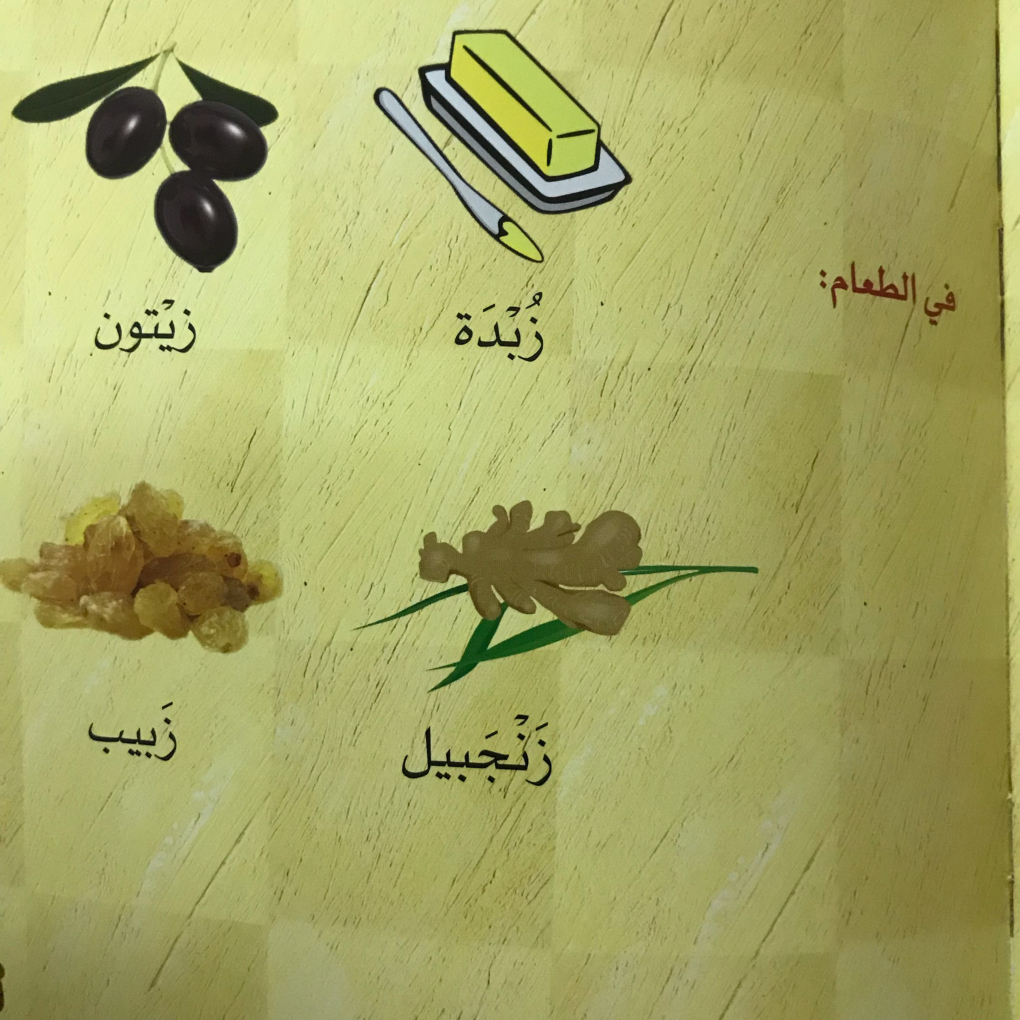 في الطعام:
زُبْدَة
زيْتون
زَنْجَبيل
زَبيب